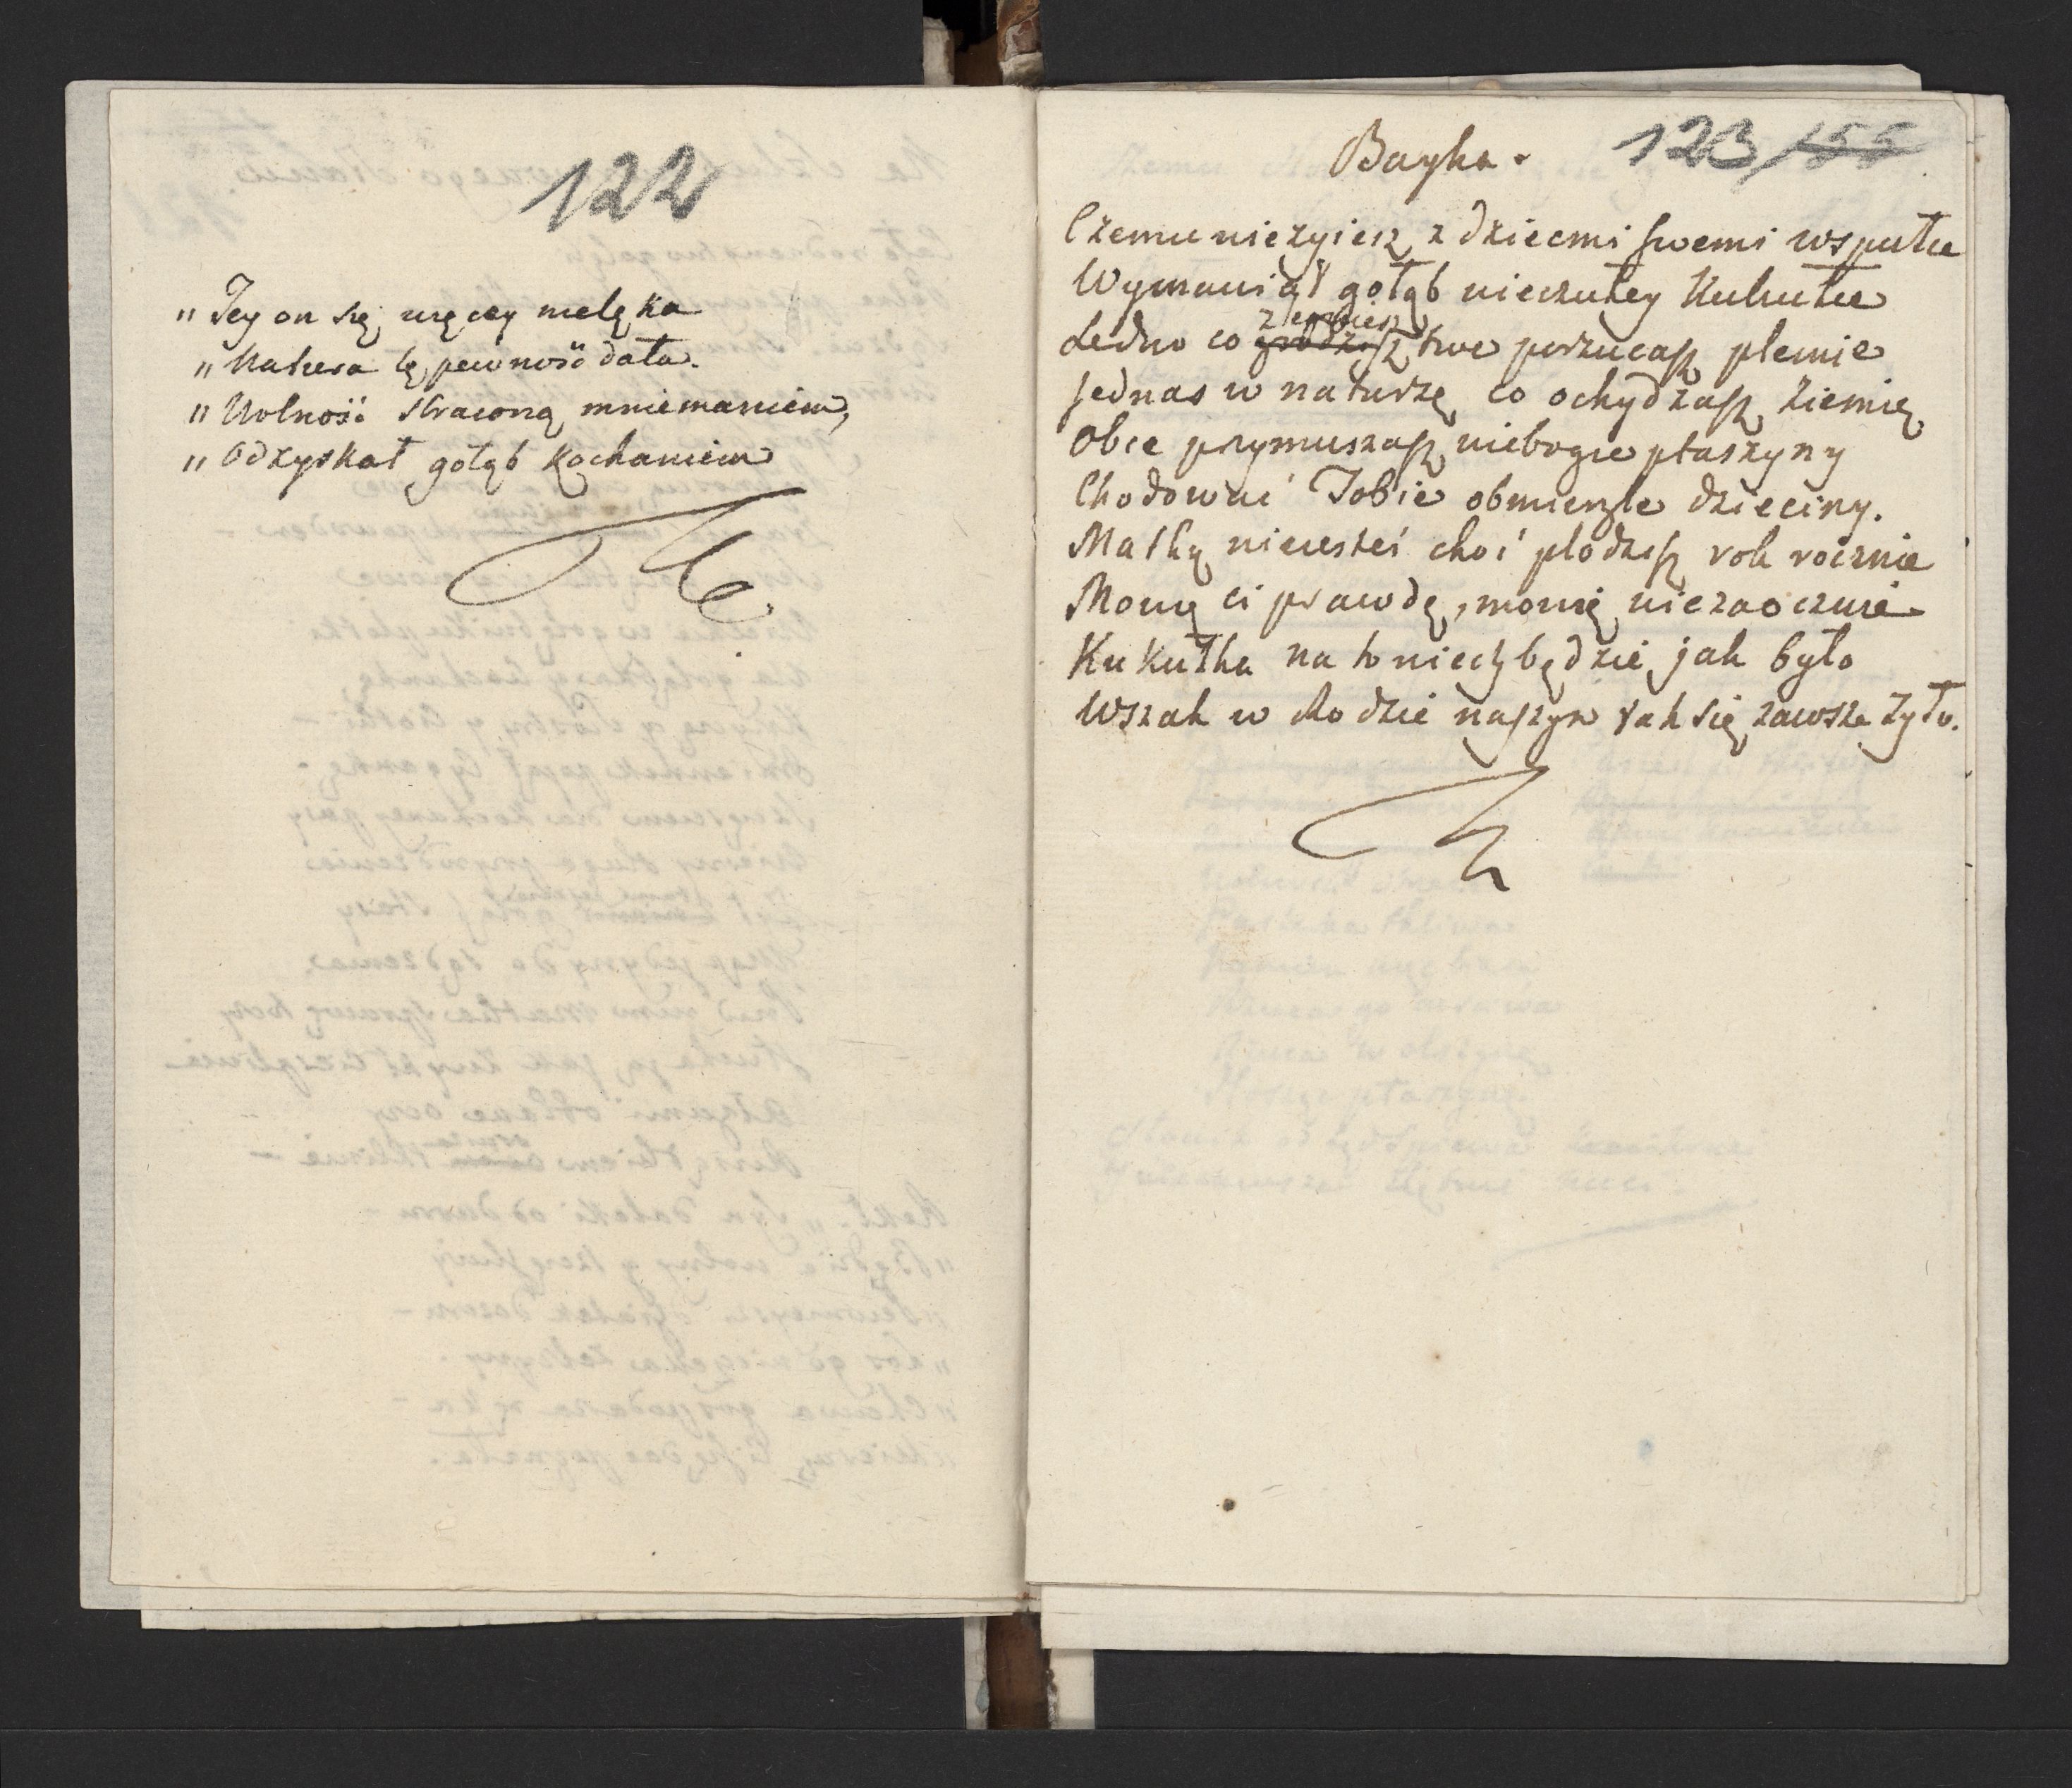 122
"Jey on się więcey nielęka
"Natura tę pewność dała.
"Wolność straconą mniemaniem,
"Odzyskał gołąb kochaniem
Bayka. 123 155
Czemu nieżyiesz z dziecmi swemi wspułce
Wymawiał gołąb nieczułey Kukułce
Ledwo co zniesiesz zrodzisz twe porzucasz plemie
Jednas w naturze co ochydzasz ziemię
Obce przymuszasz niebogie ptaszyny
Chodować Tobie obmierzłe dzieciny.
Matką niejesteś choć płodzisz rok rocznie
Mowię ci prawdę, mowię niezaocznie
Kukułka na to niech będzie jak było
Wszak w Rodzie naszym tak się zawsze żyło.